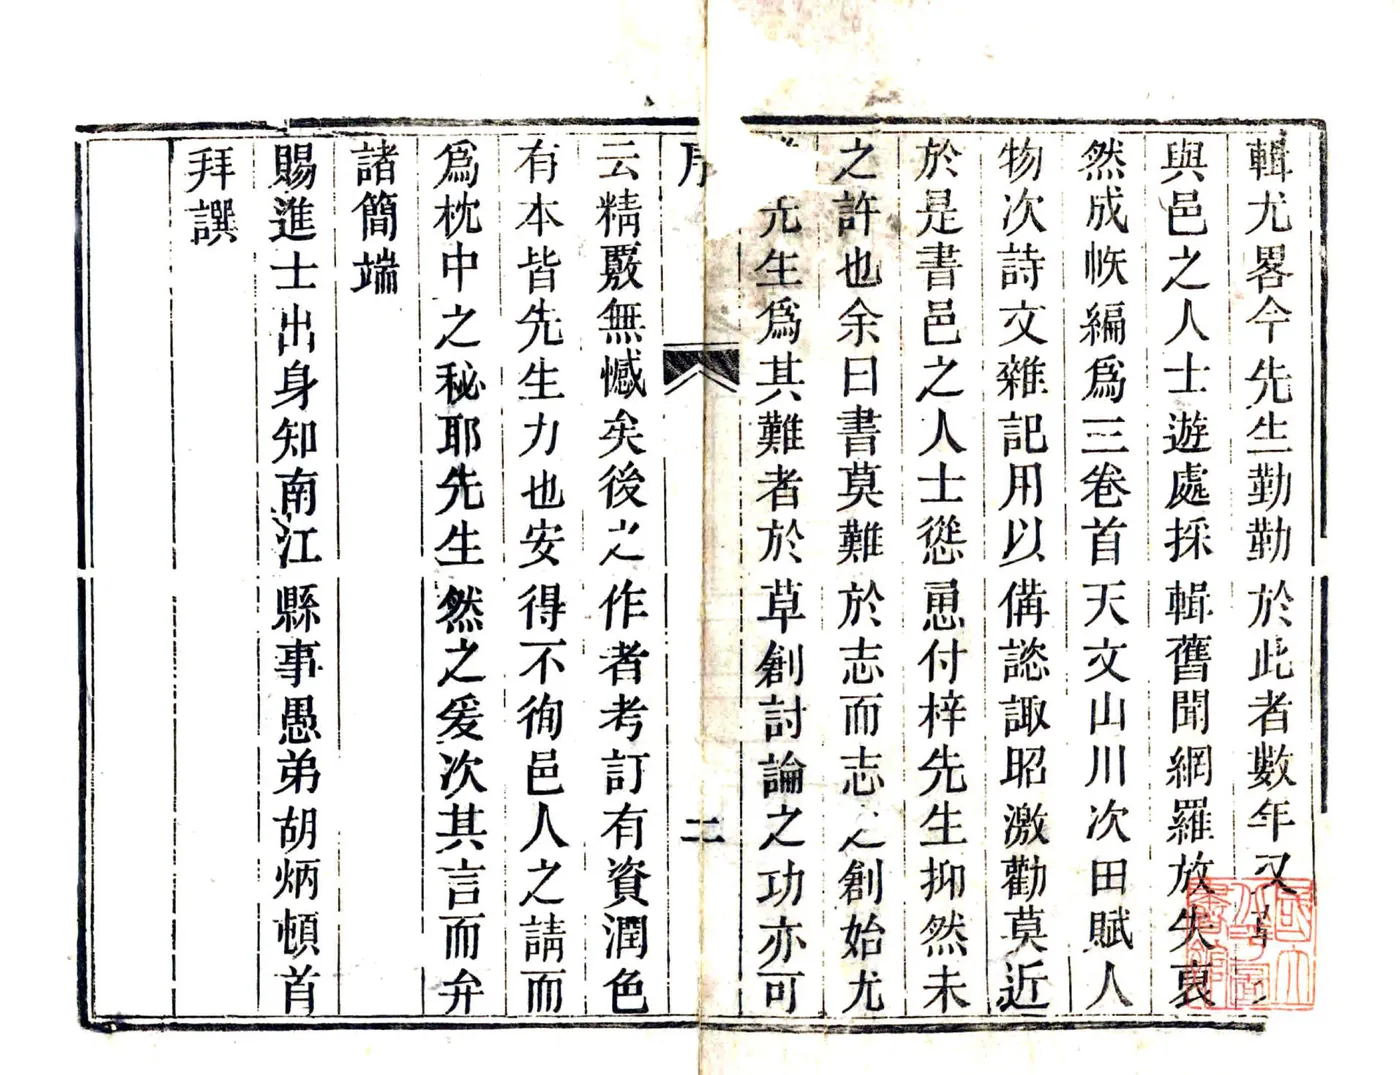 輯尤畧今先生勤勤於此者數年又
與邑之人士遊處採輯舊聞網羅放失裒
然成帙編爲三卷首天文山川次田賦人
物次詩文雜記用以備諮諏昭激勸莫近
於是書邑之人士慫恿付梓先生抑然未
之許也余曰書莫難於志而志之創始尤
難先生爲其難者於草創討論之功亦可
序
二
云精覈無憾矣後之作者考訂有資潤色
有本皆先生力也安得不徇邑人之請而
爲枕中之秘耶先生然之爰次其言而弁
諸簡端
賜進士出身知南江縣事愚弟胡炳頓首
拜譔